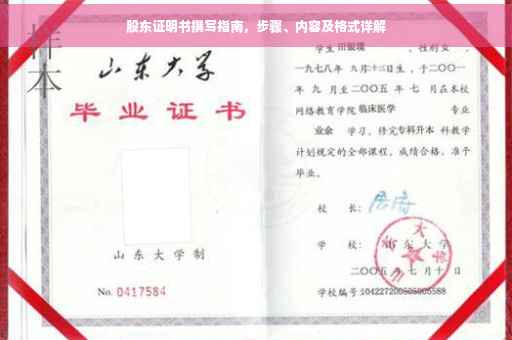 股东证明书撰写指南，步骤、内容及格式详解
样本
山东大学
毕业证书
山东大学制
No. 0417584
学生 田银瑞 ，性别女 ，
一九七八年 九月十三日生，于二〇〇一
年 九 月至二〇〇五 年 七 月在本校
网络教育学院临床医学 专业
业余 学习，修完专科升本 科教学
计划规定的全部课程，成绩合格，准予
毕业。
校 长：
学 校：山东大学
二〇〇五 年 七 月 十 日
学校编号:104227200505005588